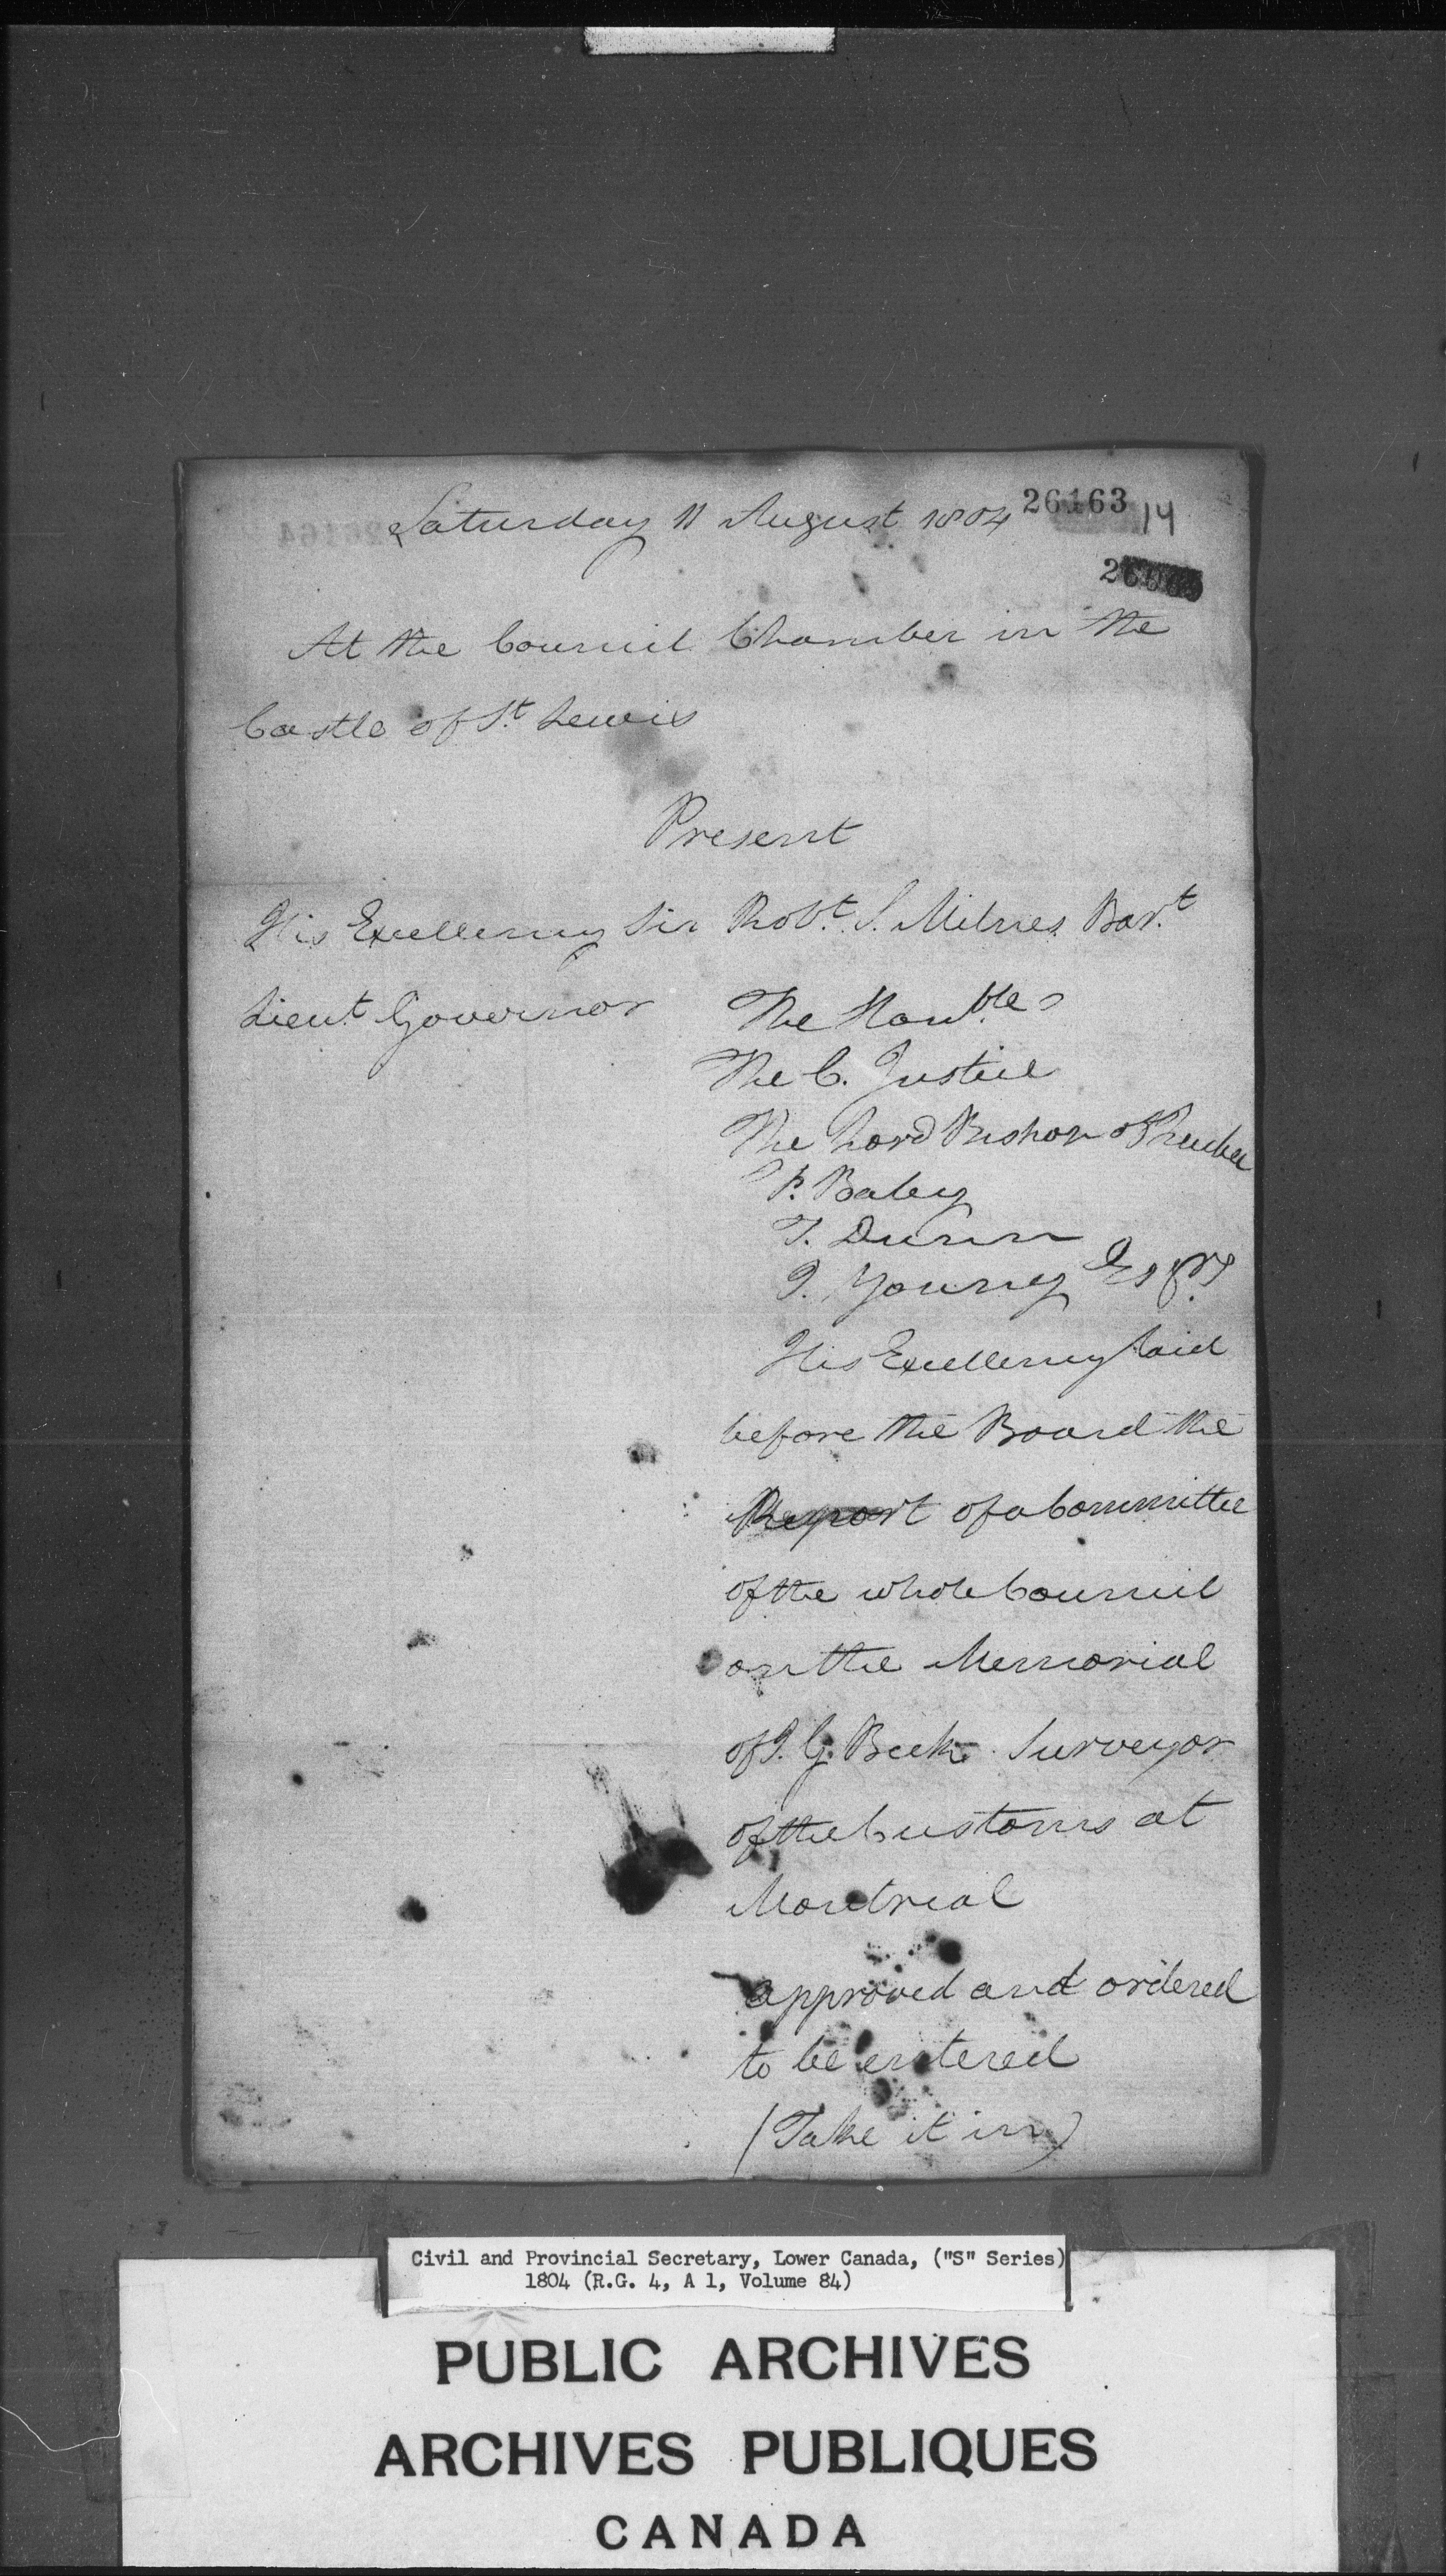 26163
14
Saturday 11 August 1804
At the Council Chamber in the
Castle of St Lewis
Present
His Excellency Sir Robt. S. Milnes Bart
Lieut Governor
The Honbles
The C. Justice
The Lord Bishop of Quebec
F. Baby
T. Dunn
J. Young Esqrs
His Excellency laid
before the Board the
Report of a Committee
of the whole Council
on the Memorial
of J. G. Beek Surveyor
of the Customs at
Montreal
approved and ordered
to be entered
(Take it in)
Civil and Provincial Secretary, Lower Canada, ("S" Series)
1804 (R.G. 4, A 1, Volume 84)
PUBLIC ARCHIVES
ARCHIVES PUBLIQUES
CANADA